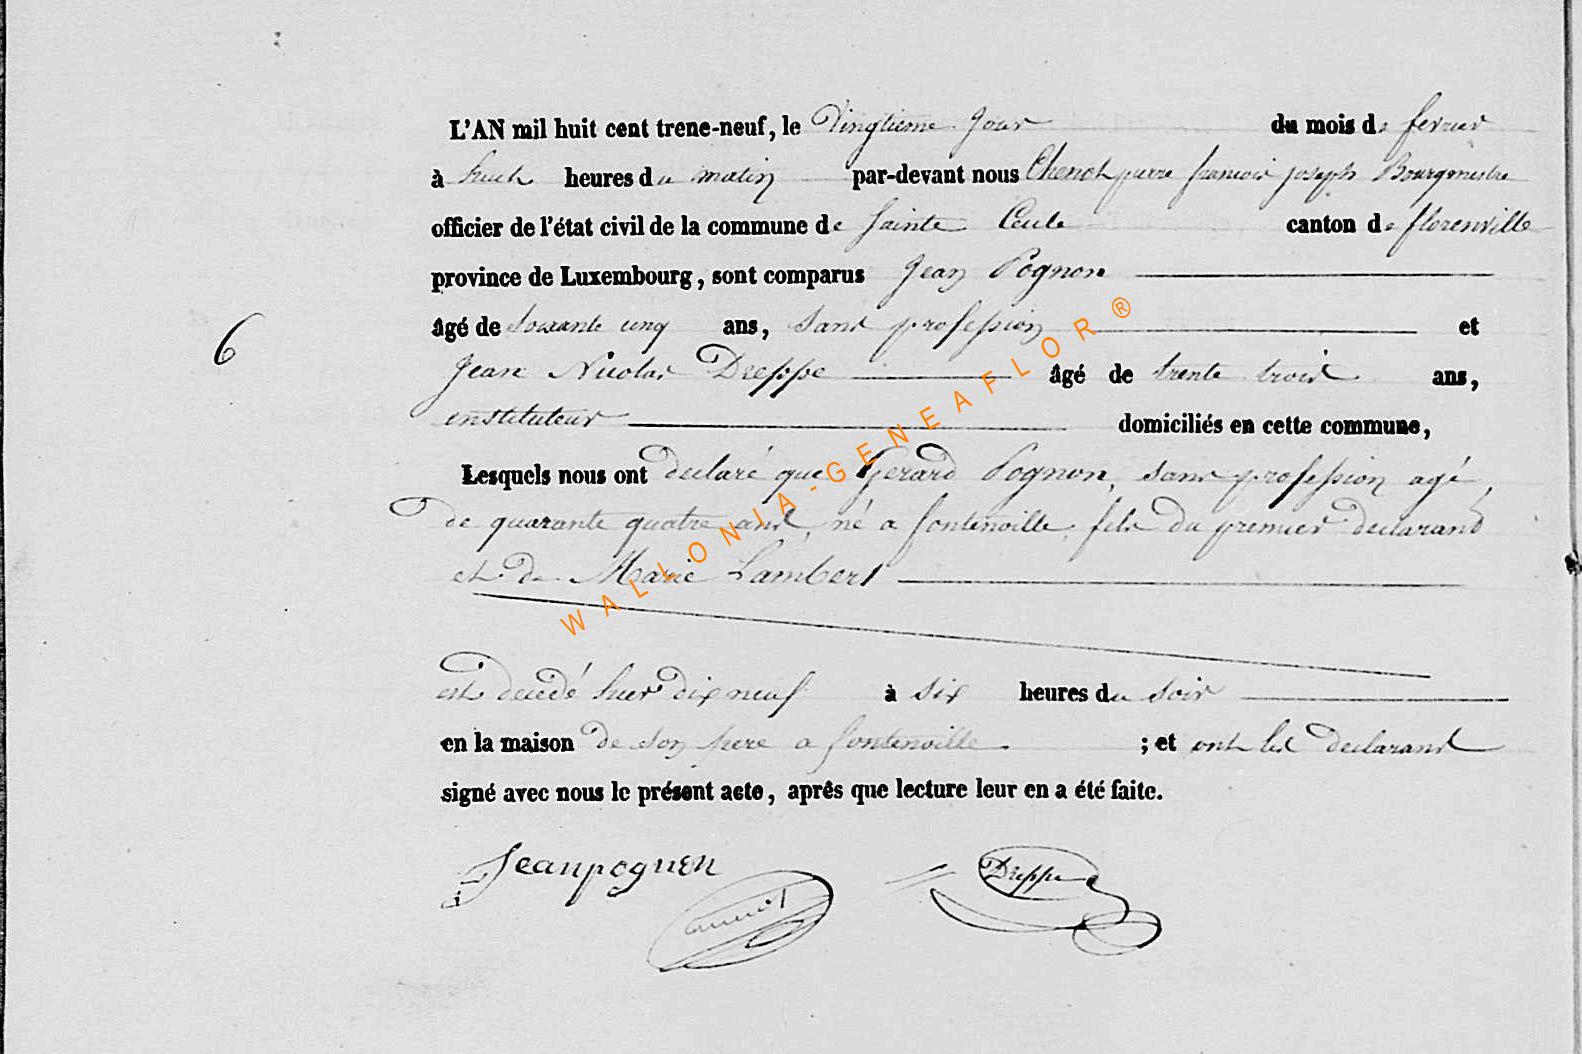 L'AN mil huit cent trene-neuf, le Vingtieme jour du mois de fevrier
à huit heures du matin par-devant nous Chenot pierre francois joseph Bourgmestre
officier de l'état civil de la commune de Sainte Cecile canton de florenville
province de Luxembourg, sont comparus Jean Pognon
âgé de soixante cinq ans, sans profession et
6
Jean Nicolas Dreppe âgé de trente trois ans,
instituteur domiciliés en cette commune,
Lesquels nous ont declaré que Gerard Pognon, sans profession agé,
de quarante quatre ans, né a fontenoille, fils du premier declarant
et de Marie Lambert
est decedé hier dix neuf à six heures du soir
en la maison de son pere a fontenoille ; et ont les declarant
signé avec nous le présent acte, après que lecture leur en a été faite.
Jean pognon
Dreppe
WALLONIA-GENEAFLOR®